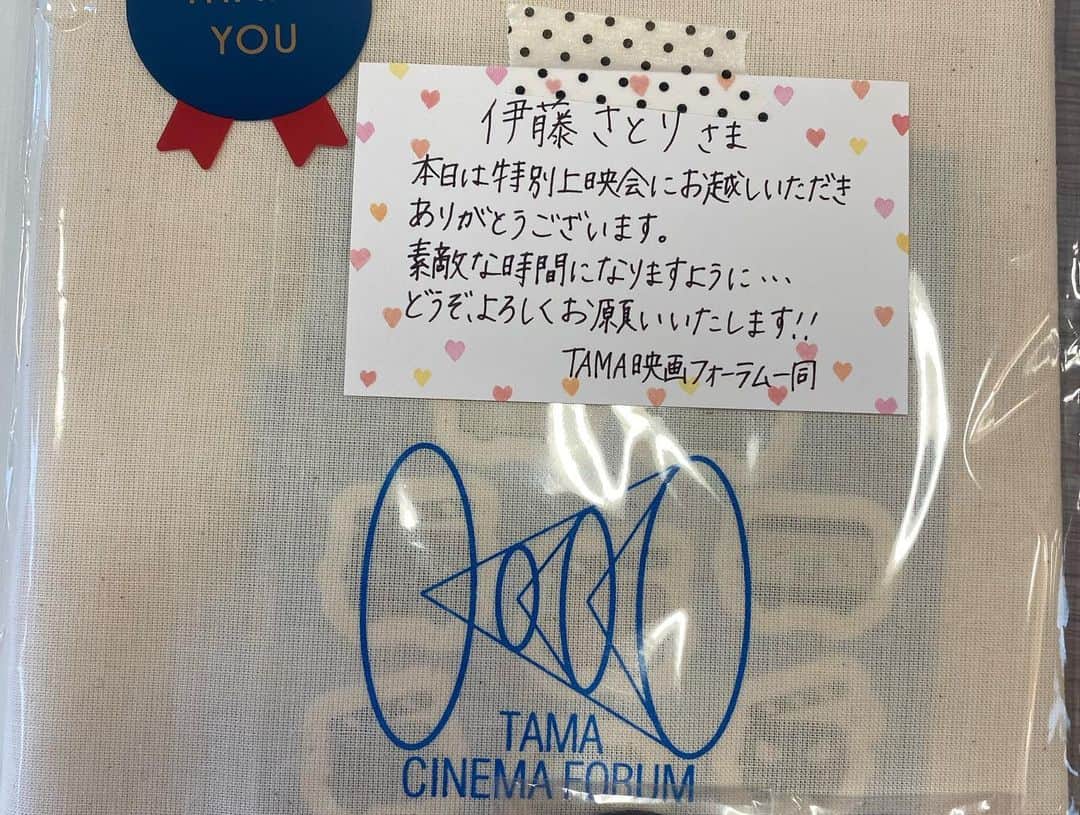 YOU
伊藤さとりさま
本日は特別上映会にお越しいただき
ありがとうございます。
素敵な時間になりますように…
どうぞ、よろしくお願いいたします!!
TAMA映画フォーラム一同
TAMA
CINEMA FORUM